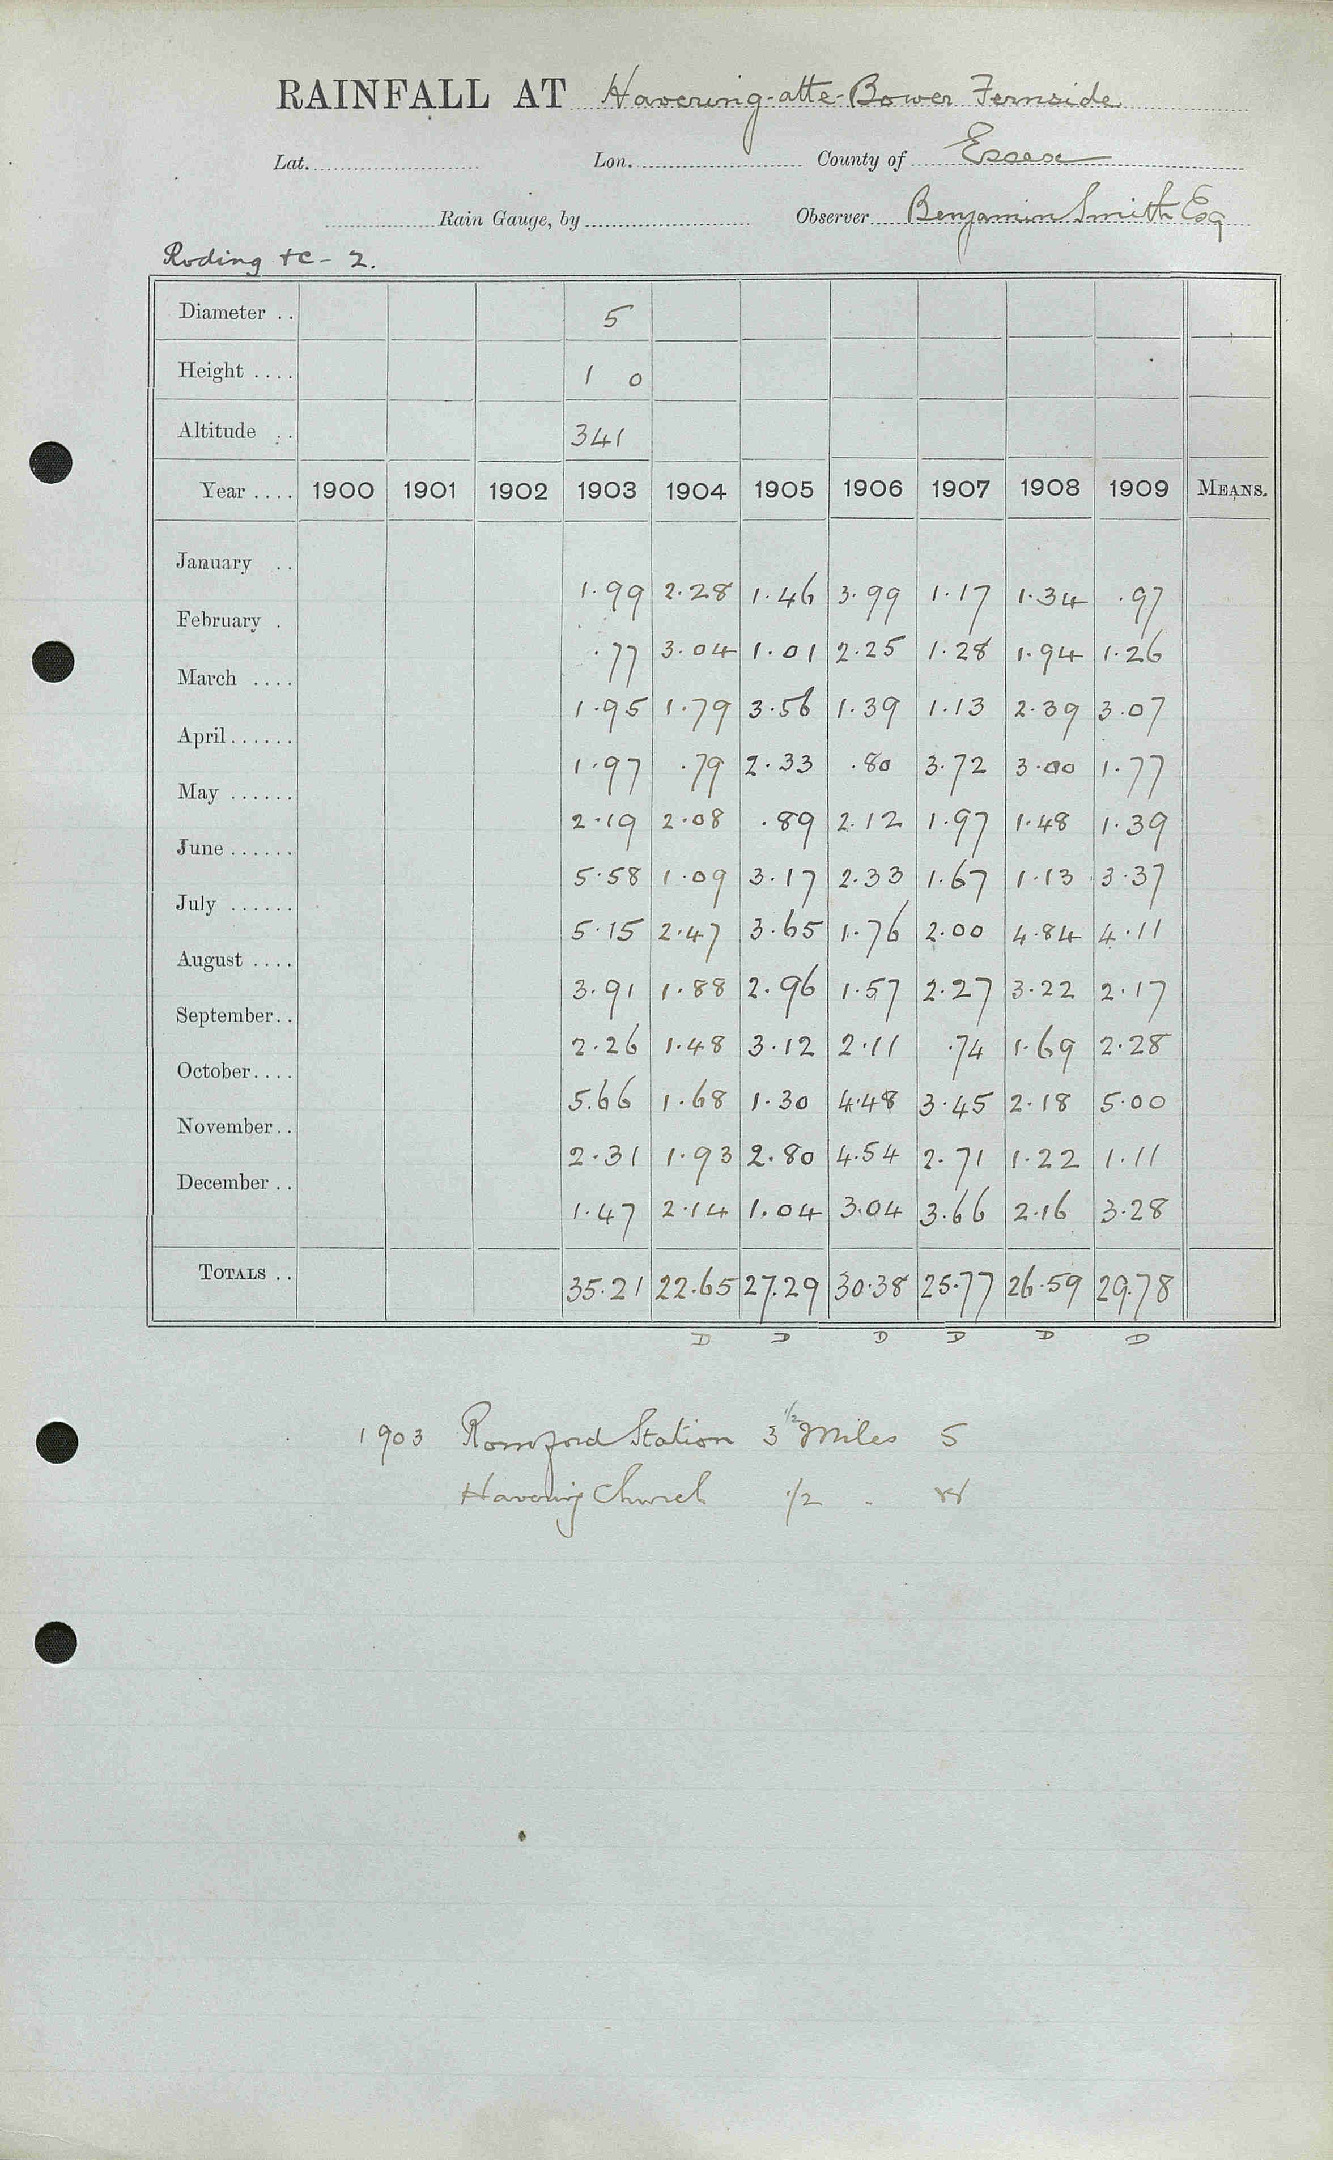 RAINFALL AT Havering-atte-Bower Fernside
Lat. Lon. County of Essex
Rain Gauge, by Observer Benjamin Smith Esq
Roding &c - 2.
Diameter .. 5
Height .... 1 0
Altitude .. 341
Year .... 1900 1901 1902 1903 1904 1905 1906 1907 1908 1909 MEANS.
January .. 1.99 2.28 1.46 3.99 1.17 1.34 .97
February . .77 3.04 1.01 2.25 1.28 1.94 1.26
March .... 1.95 1.79 3.56 1.39 1.13 2.39 3.07
April...... 1.97 .79 2.33 .80 3.72 3.00 1.77
May ...... 2.19 2.08 .89 2.12 1.97 1.48 1.39
June ...... 5.58 1.09 3.17 2.33 1.67 1.13 3.37
July ...... 5.15 2.47 3.65 1.76 2.00 4.84 4.11
August .... 3.91 1.88 2.96 1.57 2.27 3.22 2.17
September.. 2.26 1.48 3.12 2.11 .74 1.69 2.28
October.... 5.66 1.68 1.30 4.48 3.45 2.18 5.00
November.. 2.31 1.93 2.80 4.54 2.71 1.22 1.11
December .. 1.47 2.14 1.04 3.04 3.66 2.16 3.28
TOTALS .. 35.21 22.65 27.29 30.38 25.77 26.59 29.78
D D D D D D
1903 Romford Station 3 1/2 Miles S
Havering Church 1/2 .